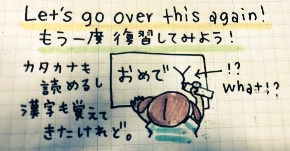 Let's go over this again!
もう一度復習してみよう!
カタカナも
読めるし
漢字も覚えて
きたけれど。
おめで
!?
what!?